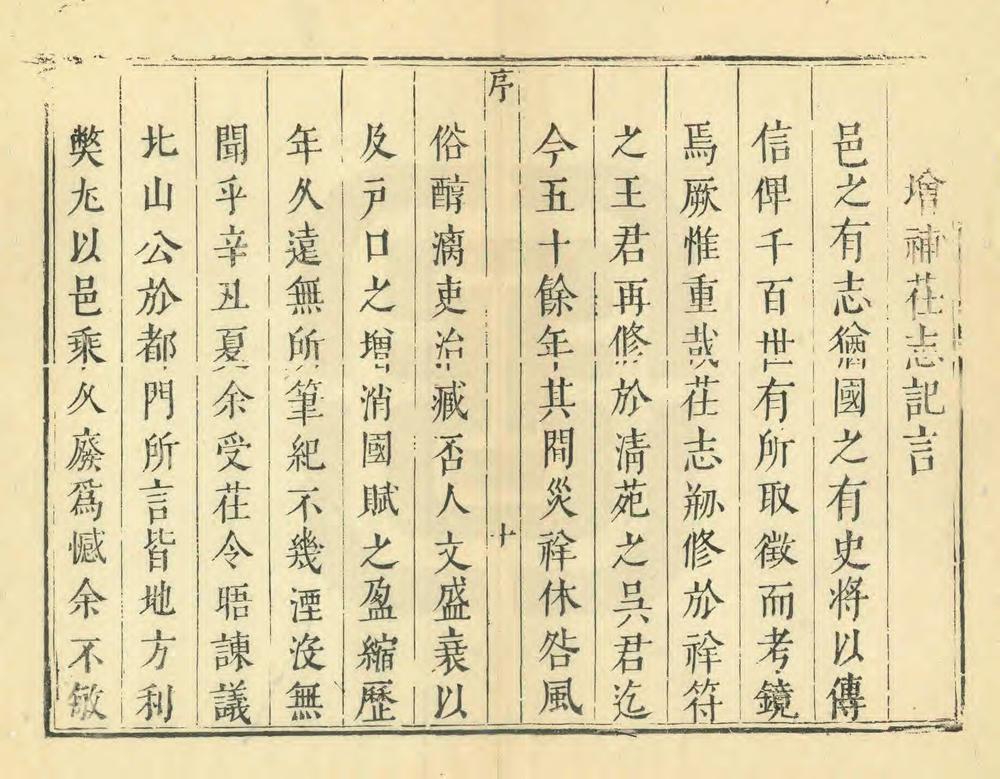 增補茌志記言
邑之有志猶國之有史將以傳
信俾千百世有所取徵而考鏡
焉厥惟重哉茌志剙修於祥符
之王君再修於淸苑之吳君迄
今五十餘年其間災祥休咎風
序
十
俗醇漓吏治臧否人文盛衰以
及戸口之增消國賦之盈縮歷
年久遠無所筆紀不幾湮沒無
聞乎辛丑夏余受茌令晤諫議
北山公於都門所言皆地方利
獘尤以邑乘久廢爲憾余不敏